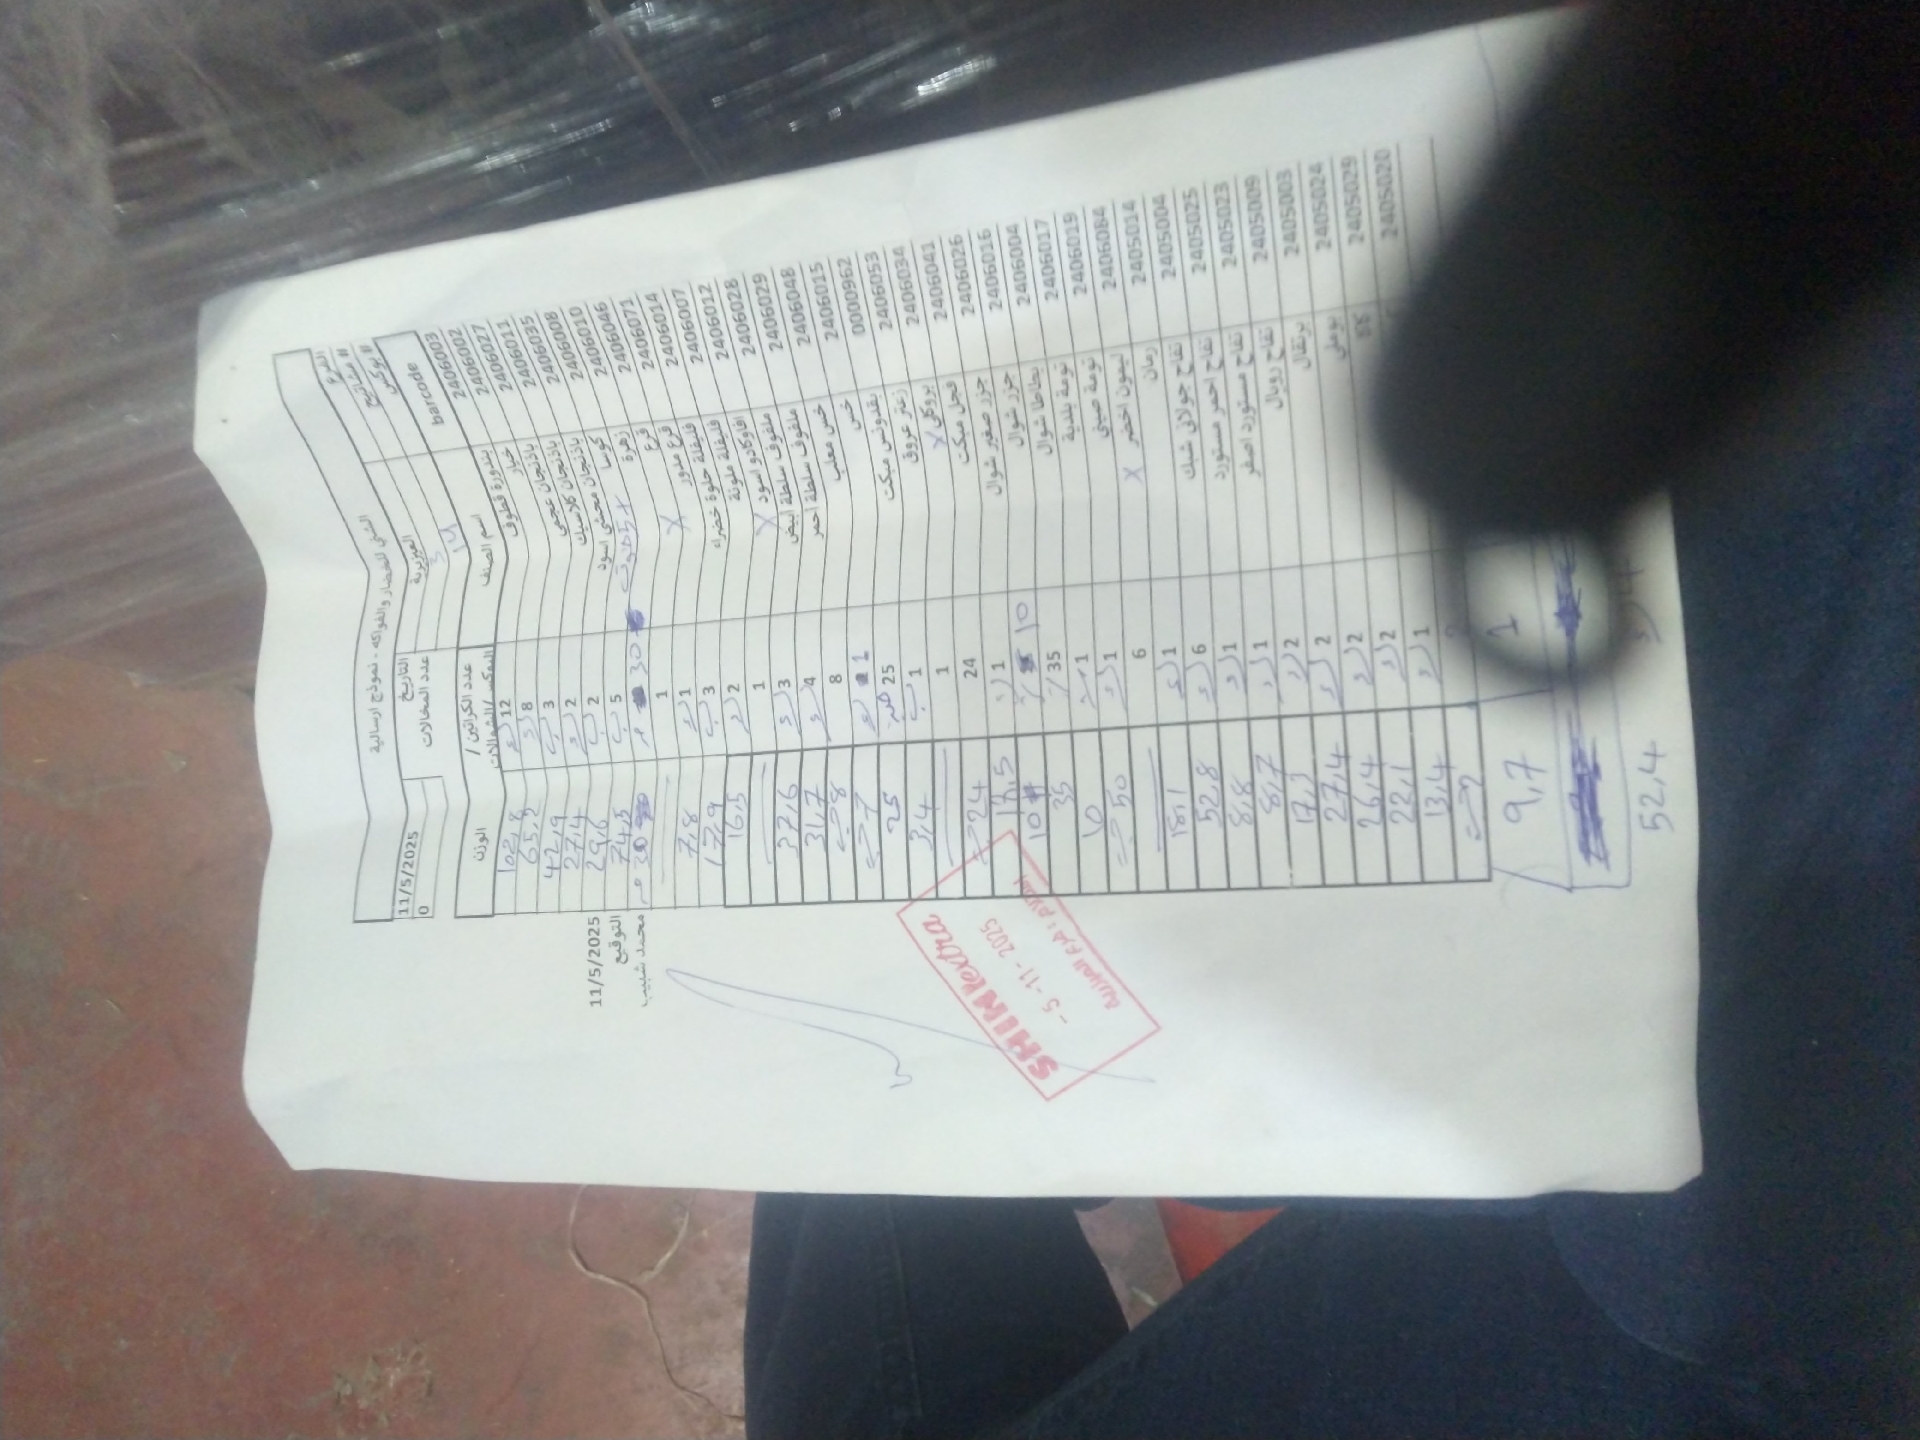 الشني للخضار والفواكه - نموذج ارسالية
الفرع الميزرية التاريخ 11/5/2025
# مشاتيح 3 عدد المخالات 0
# بوكس 14
barcode اسم الصنف عدد الكراتين / البوكس/الشوالات الوزن
2406003 بندورة قطوف 12 102,8
2406002 خيار 8 65,2
2406027 باذنجان عجمي 3 42,9
2406011 باذنجان كلاسيك 2 27,4
2406035 باذنجان محشي اسود 2 29,6
2406008 كوسا 5 74,5
2406010 زهرة 30 30
2406046 قرع 1
2406071 قرع مدور X 1 7,8
2406014 فليفلة حلوة خضراء 3 17,9
2406007 فليفلة ملونة 2 16,5
2406012 افاوكادو اسود X 1
2406028 ملفوف سلطة ابيض 3 37,6
2406029 ملفوف سلطة احمر 4 31,7
2406048 خس معلب 8 8
2406015 خس 1 7
0000962 بقدونس مبكت 25 25
2406053 زعتر عروق 1 3,4
2406034 بروكلي X 1
2406041 فجل مبكت 24 24
2406026 جزر صغير شوال 1 17,5
2406016 جزر شوال 10 10
2406004 بطاطا شوال 35 35
2406017 تومة بلدية 1 10
2406019 تومة صيني 1 50
2406084 ليمون اخضر X 6
2405014 رمان 1 18,1
2405004 تفاح جولاني شبك 6 52,8
2405025 تفاح احمر مستورد 1 8,8
2405023 تفاح مستورد اصفر 1 8,7
2405009 تفاح رويال 2 17,3
2405003 برتقال 2 27,4
2405024 بوملي 2 26,4
2405029 كاكا 2 22,1
2405020 1 13,4
1 9,7
52,4
11/5/2025
التوقيع
محمد شبيب
SHINI extra
- 5 -11- 2025